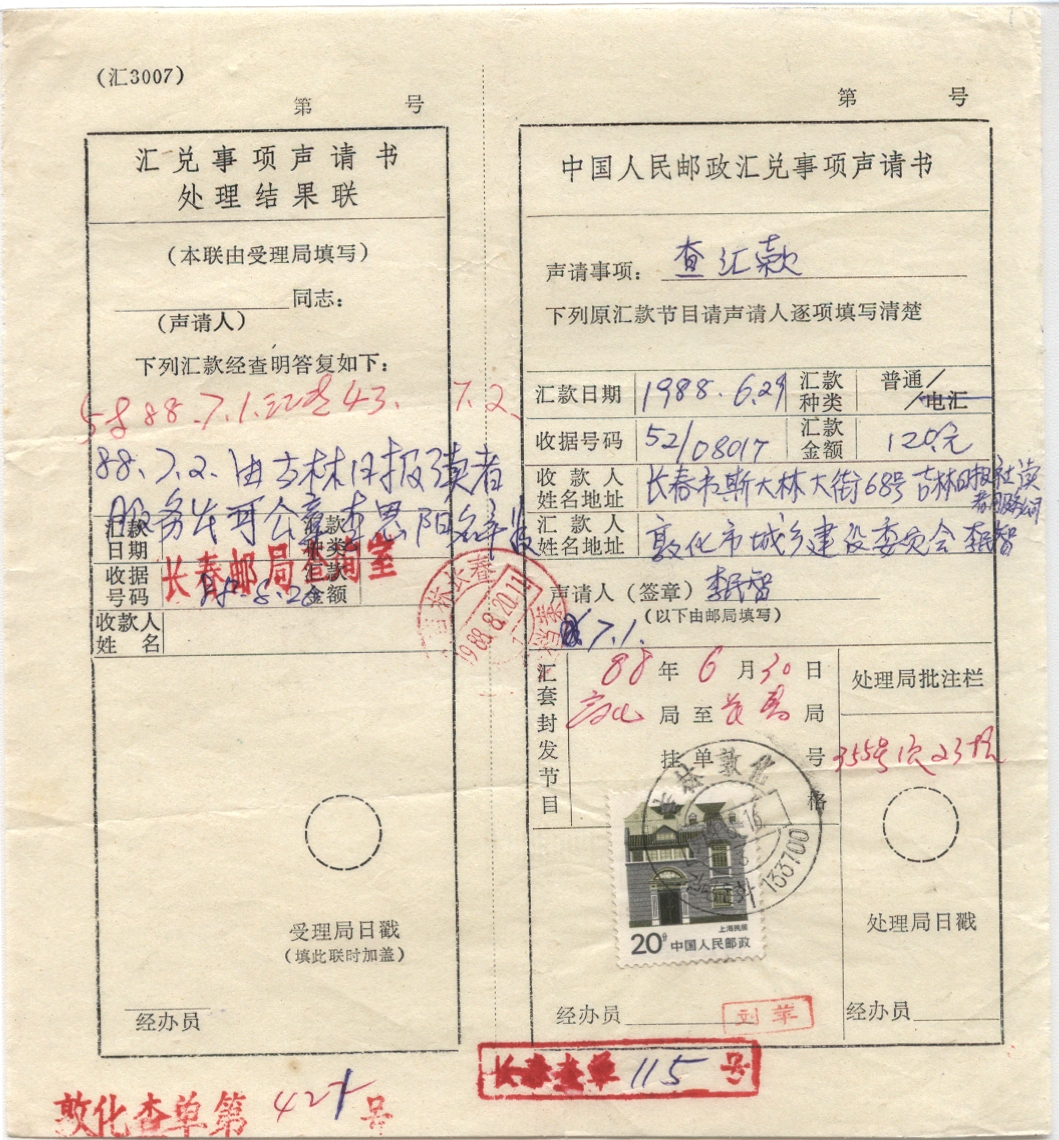 (汇3007)
第 号
汇兑事项声请书
处理结果联
(本联由受理局填写)
同志：
(声请人)
下列汇款经查明答复如下：
88.7.1. 43. 7.2.
88.7.2. 由吉林日报读者
服务 公章
汇款日期 汇款种类
长春邮局查询室
收据号码 汇款金额
收款人姓名
受理局日戳
(填此联时加盖)
经办员
敦化查单第 421 号
第 号
中国人民邮政汇兑事项声请书
声请事项： 查汇款
下列原汇款节目请声请人逐项填写清楚
汇款日期 1988.6.29 汇款种类 普通/电汇
收据号码 52/08017 汇款金额 120元
收款人姓名地址 长春市斯大林大街68号 吉林日报社读者服务公司
汇款人姓名地址 敦化市城乡建设委员会 李民智
声请人（签章） 李民智
(以下由邮局填写)
7.1.
汇套封发节目 88 年 6 月 30 日
敦化 局至 长春 局
挂单 号
格
处理局批注栏
355号
吉林长春
1988.8.20.11
吉林敦化
133700
上海民居
20分 中国人民邮政
处理局日戳
经办员 刘苹
经办员
长春查单 115 号